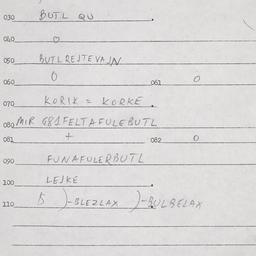 030 BUTL QU
040 0
050 BUTLREJTEVAJN
060 0 061 0
070 KORIK = KORKE
080 MIR G81FELTAFULEBUTL
081 + 082 0
090 FUNAFULERBUTL
100 LEJKE
110 5 )-BLEZLAX )-BULBELAX